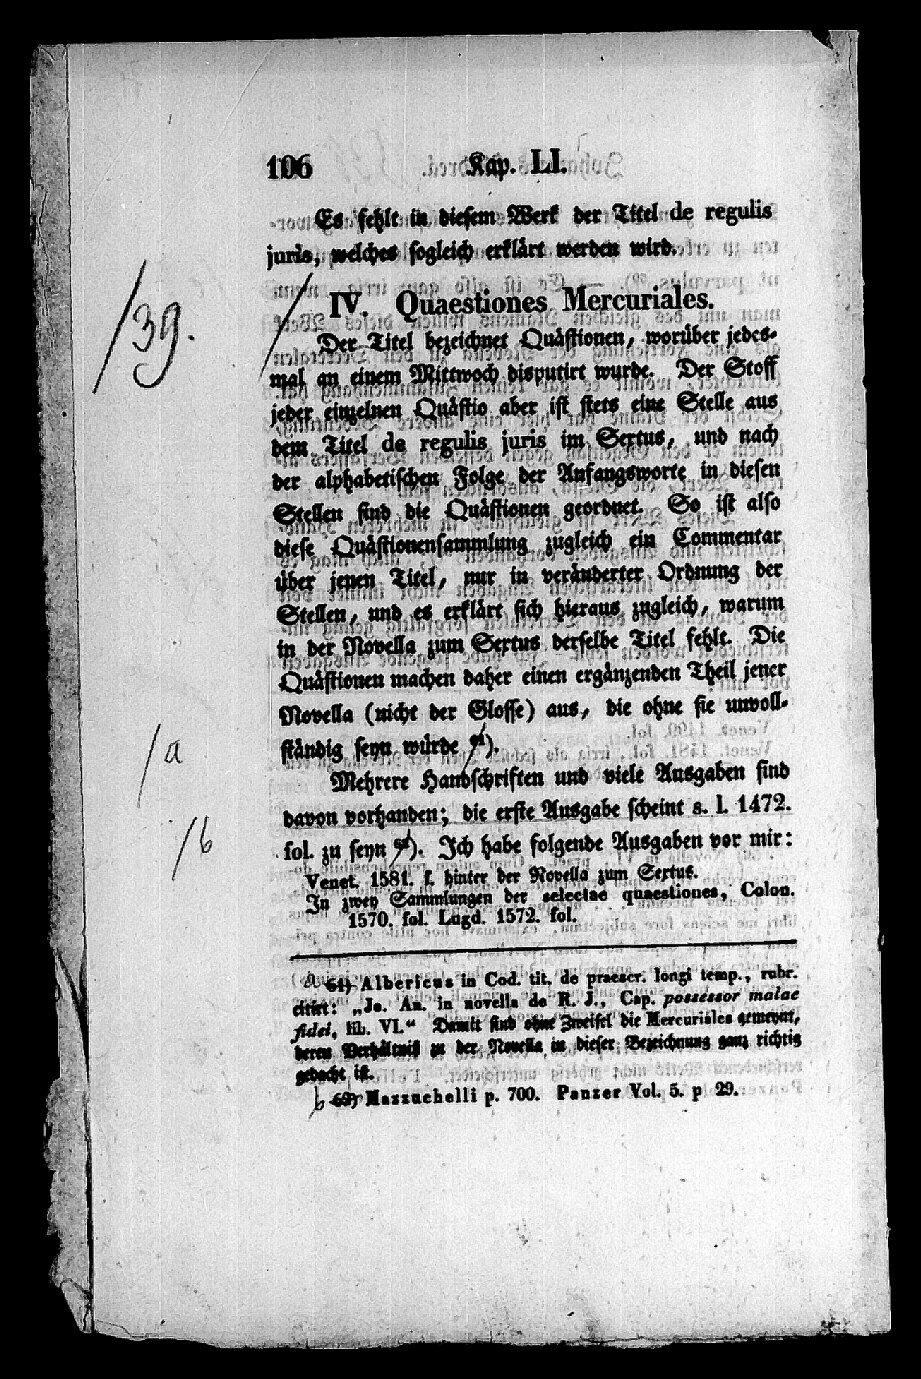 106 Kap. LI.
Es fehlt in diesem Werk der Titel de regulis
juris, welches sogleich erklärt werden wird.
/39. / IV. Quaestiones Mercuriales.
Der Titel bezeichnet Quästionen, worüber jedes-
mal an einem Mittwoch disputirt wurde. Der Stoff
jeder einzelnen Quästio aber ist stets eine Stelle aus
dem Titel de regulis juris im Sextus, und nach
der alphabetischen Folge der Anfangsworte in diesen
Stellen sind die Quästionen geordnet. So ist also
diese Quästionensammlung zugleich ein Commentar
über jenen Titel, nur in veränderter Ordnung der
Stellen, und es erklärt sich hieraus zugleich, warum
in der Novella zum Sextus derselbe Titel fehlt. Die
Quästionen machen daher einen ergänzenden Theil jener
Novella (nicht der Glosse) aus, die ohne sie unvoll-
/a ständig seyn würde 61).
Mehrere Handschriften und viele Ausgaben sind
davon vorhanden; die erste Ausgabe scheint s. l. 1472.
/b fol. zu seyn). Ich habe folgende Ausgaben vor mir:
Venet. 1581. f. hinter der Novella zum Sextus.
In zwey Sammlungen der selectae quaestiones, Colon.
1570. fol. Lugd. 1572. fol.
a 61) Albericus in Cod. tit. de praescr. longi temp., rubr.
citirt: „Jo. An. in novella de R. J., Cap. possessor malae
fidei, lib. VI.“ Damit sind ohne Zweifel die Mercuriales gemeynt,
deren Verhältniß zu der Novella in dieser Bezeichnung ganz richtig
gedacht ist.
b Mazzuchelli p. 700. Panzer Vol. 5. p 29.